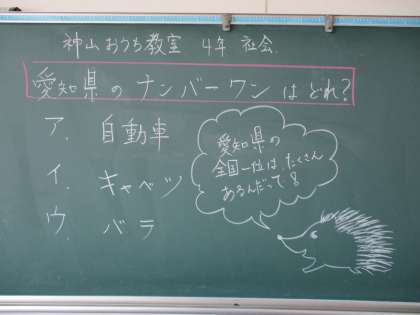 神山おうち教室 4年 社会
愛知県のナンバーワンはどれ?
ア. 自動車
イ. キャベツ
ウ. バラ
愛知県の
全国一位は、たくさん
あるんだって!